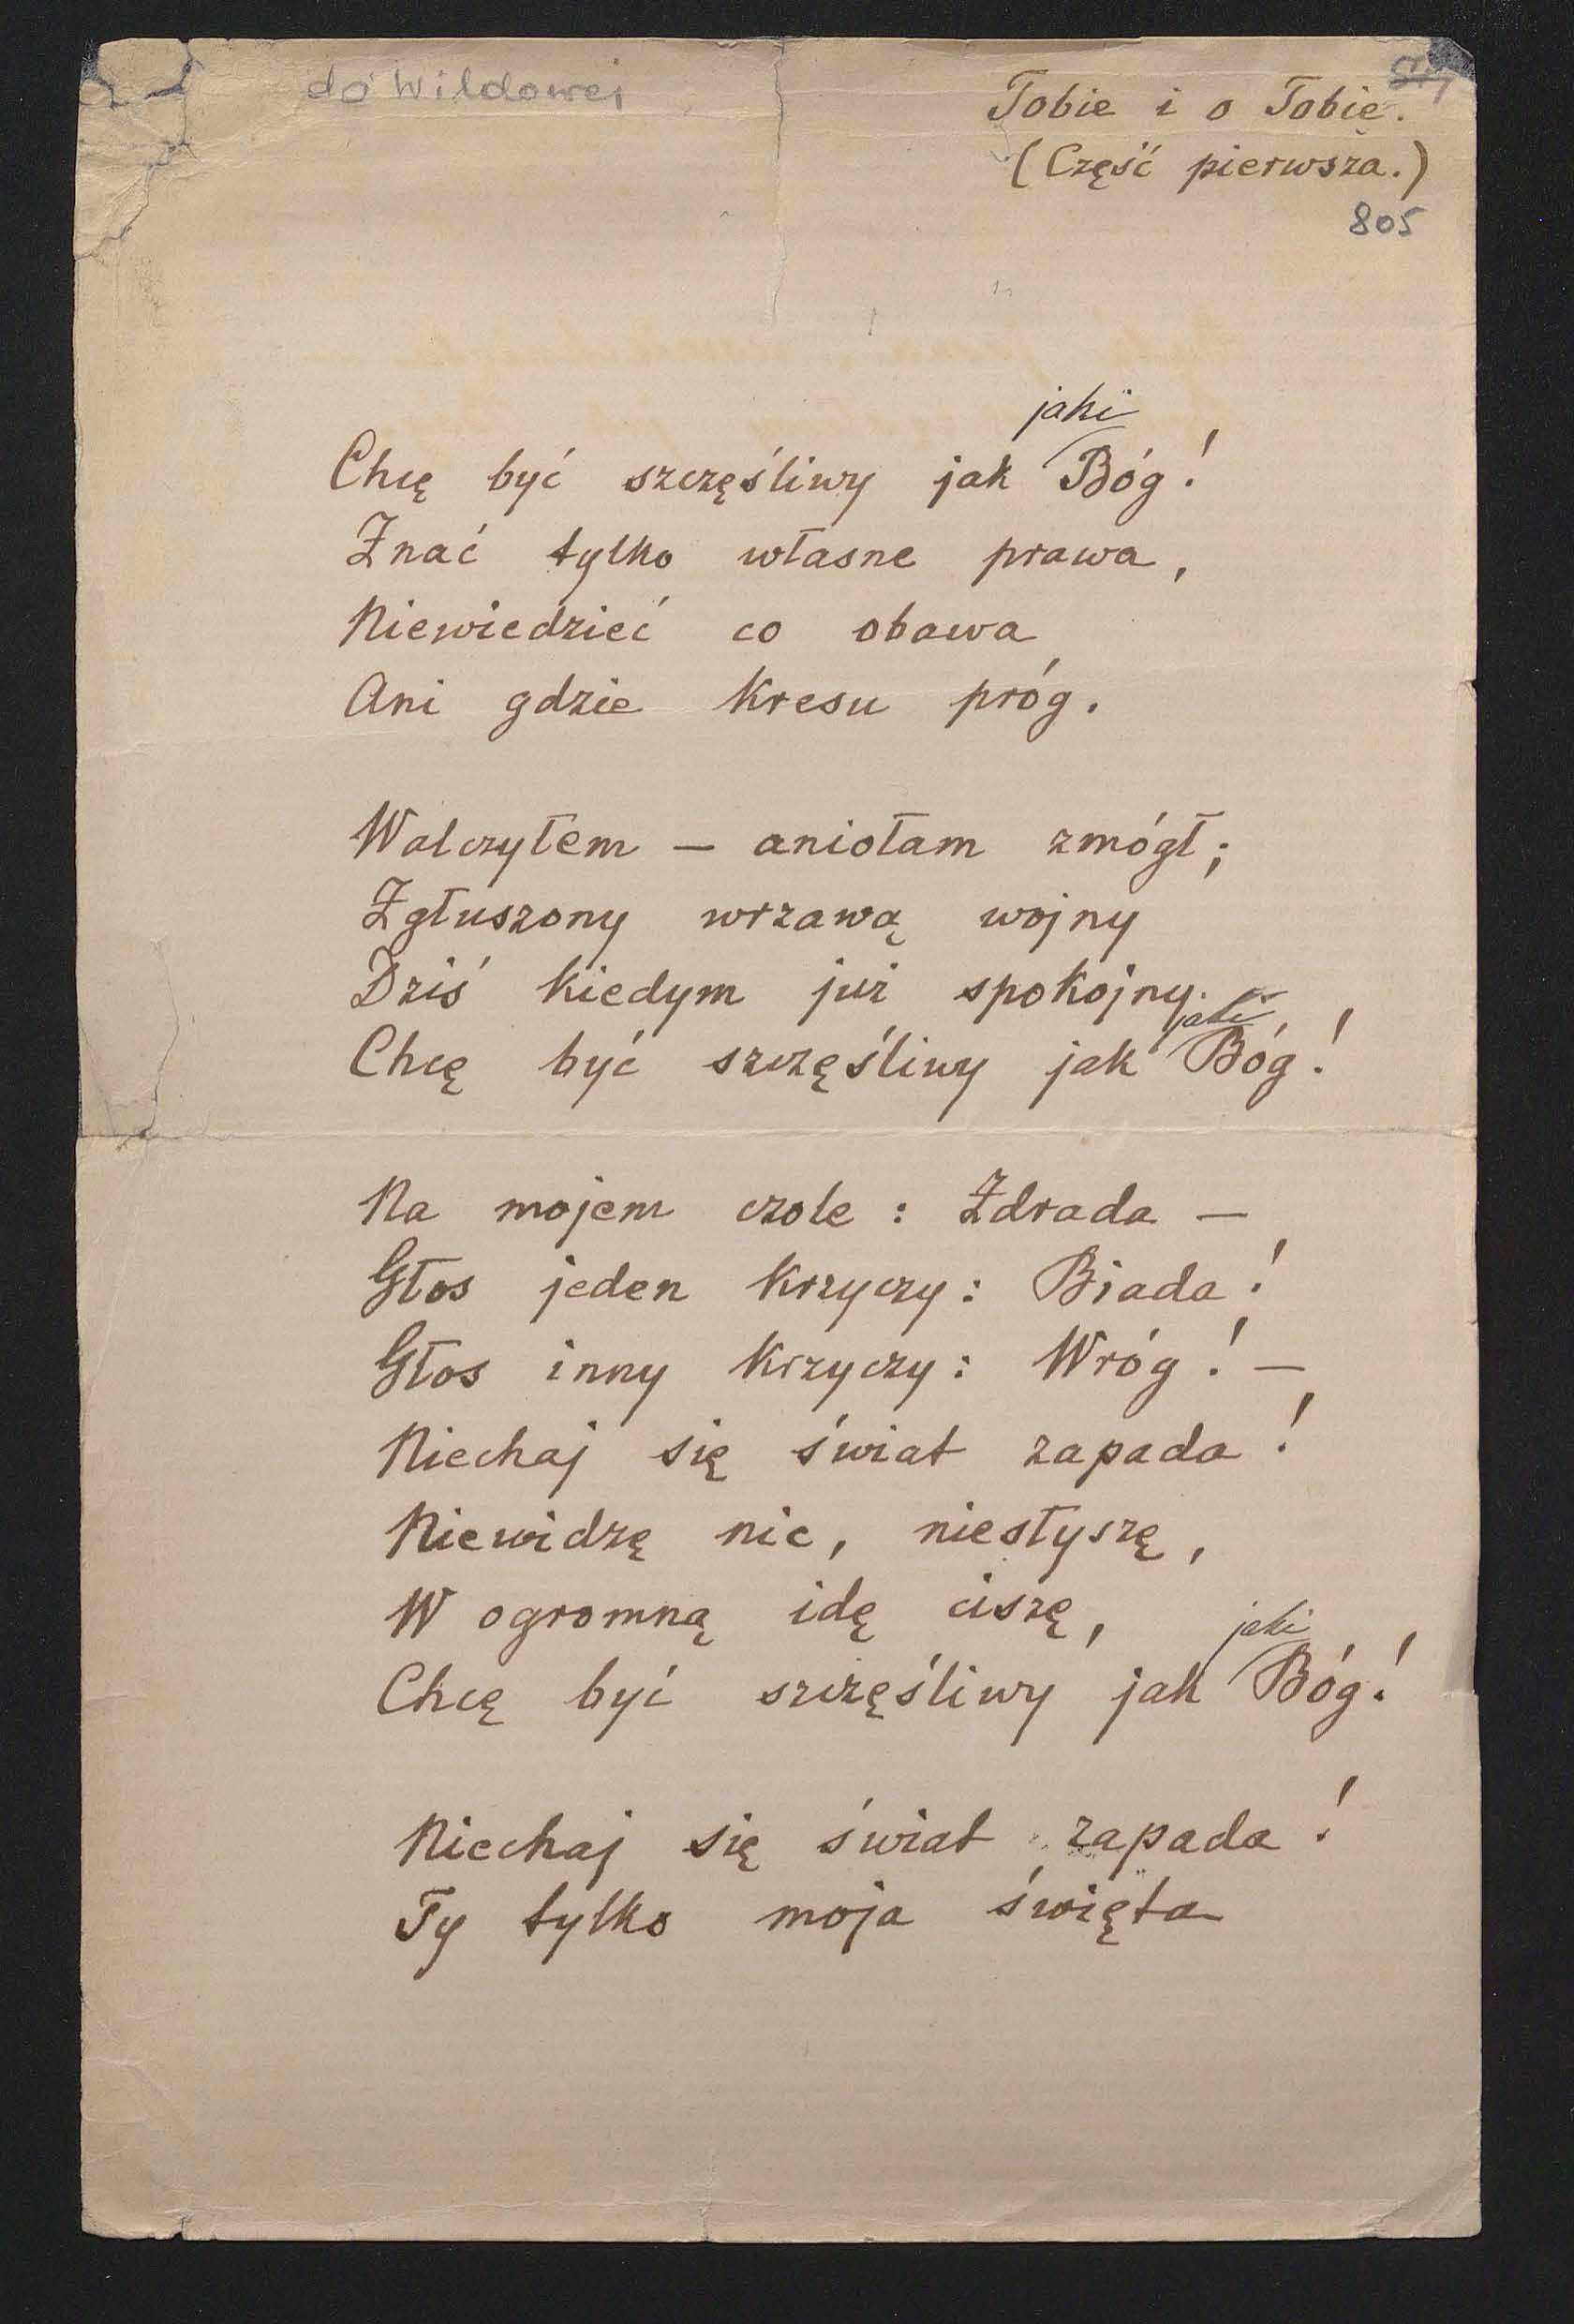 do Wildowej
Tobie i o Tobie.
(Część pierwsza.)
805
jaki
Chcę być szczęśliwy jak Bóg!
Znać tylko własne prawa,
Niewiedzieć co obawa
Ani gdzie kresu próg.
Walczyłem – aniołam zmógł;
Zgłuszony wrzawą wojny
Dziś kiedym już spokojny.
jaki
Chcę być szczęśliwy jak Bóg!
Na mojem czole: Zdrada –
Głos jeden krzyczy: Biada!
Głos inny krzyczy: Wróg! –
Niechaj się świat zapada!
Niewidzę nic, niesłyszę,
W ogromną idę ciszę,
jaki
Chcę być szczęśliwy jak Bóg!
Niechaj się świat zapada!
Ty tylko moja święta